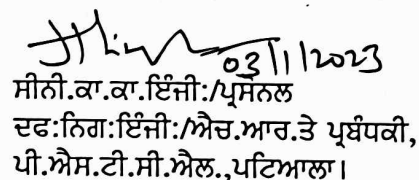 03/1/2023
ਸੀਨੀ.ਕਾ.ਕਾ.ਇੰਜੀ:/ਪ੍ਰਸੋਨਲ
ਦਫ:ਨਿਗ:ਇੰਜੀ:/ਐਚ.ਆਰ.ਤੇ ਪ੍ਰਬੰਧਕੀ,
ਪੀ.ਐਸ.ਟੀ.ਸੀ.ਐਲ.,ਪਟਿਆਲਾ।